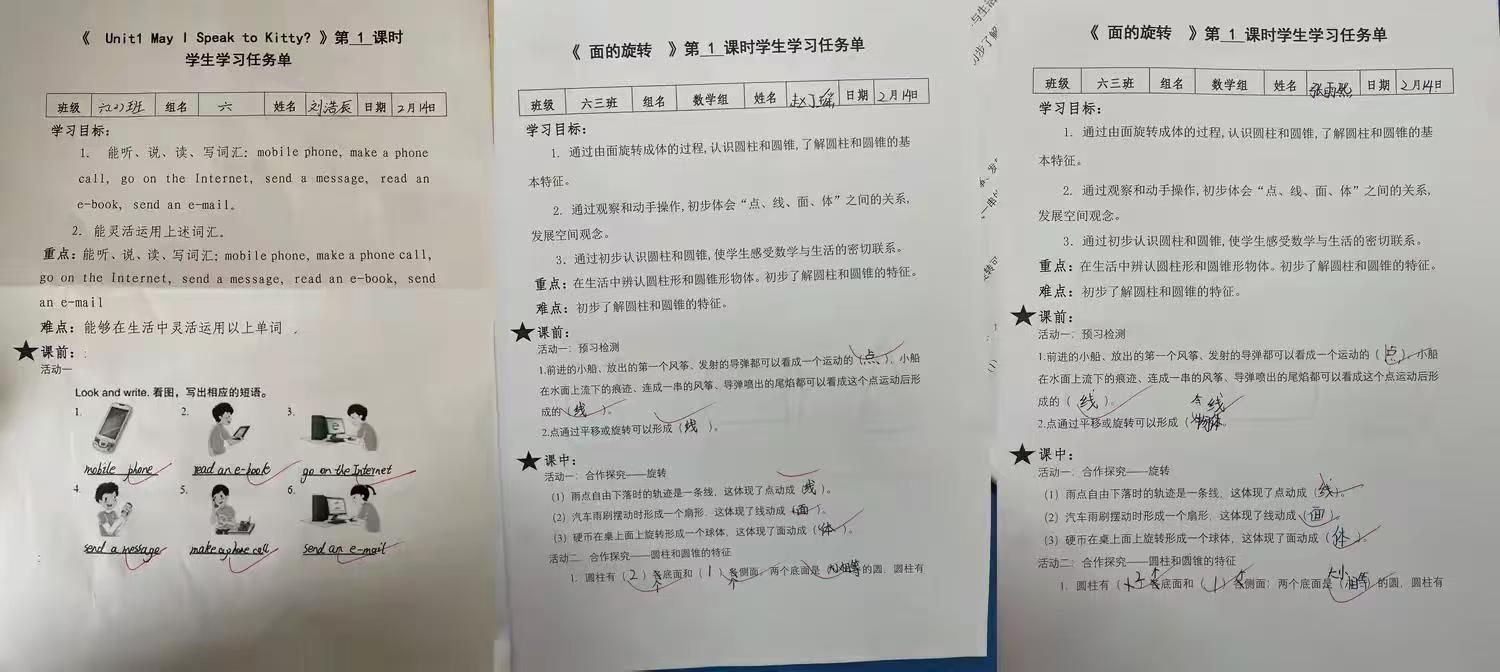 《 Unit1 May I Speak to Kitty? 》第 1 课时
学生学习任务单
班级 六(1)班 组名 六 姓名 刘浩辰 日期 2月14日
学习目标：
1. 能听、说、读、写词汇：mobile phone, make a phone
call, go on the Internet, send a message, read an
e-book, send an e-mail。
2. 能灵活运用上述词汇。
重点：能听、说、读、写词汇：mobile phone, make a phone call,
go on the Internet, send a message, read an e-book, send
an e-mail
难点：能够在生活中灵活运用以上单词 .
★课前：
活动一
Look and write. 看图，写出相应的短语。
1. 2. 3.
mobile phone read an e-book go on the Internet
4. 5. 6.
send a message make a phone call send an e-mail
《 面的旋转 》第 1 课时学生学习任务单
班级 六三班 组名 数学组 姓名 日期 2月14日
学习目标：
1. 通过由面旋转成体的过程，认识圆柱和圆锥，了解圆柱和圆锥的基
本特征。
2. 通过观察和动手操作，初步体会“点、线、面、体”之间的关系，
发展空间观念。
3. 通过初步认识圆柱和圆锥，使学生感受数学与生活的密切联系。
重点：在生活中辨认圆柱形和圆锥形物体。初步了解圆柱和圆锥的特征。
难点：初步了解圆柱和圆锥的特征。
★课前：
活动一：预习检测
1.前进的小船、放出的第一个风筝、发射的导弹都可以看成一个运动的（点）。小船
在水面上流下的痕迹、连成一串的风筝、导弹喷出的尾焰都可以看成这个点运动后形
成的（线）。
2.点通过平移或旋转可以形成（线）。
★课中：
活动一：合作探究——旋转
（1）雨点自由下落时的轨迹是一条线，这体现了点动成（线）。
（2）汽车雨刷摆动时形成一个扇形，这体现了线动成（面）。
（3）硬币在桌上面上旋转形成一个球体，这体现了面动成（体）。
活动二：合作探究——圆柱和圆锥的特征
1. 圆柱有（2）条底面和（1）条侧面；两个底面是（相等）的圆，圆柱有
个 个
《 面的旋转 》第 1 课时学生学习任务单
班级 六三班 组名 数学组 姓名 张雨熙 日期 2月14日
学习目标：
1. 通过由面旋转成体的过程，认识圆柱和圆锥，了解圆柱和圆锥的基
本特征。
2. 通过观察和动手操作，初步体会“点、线、面、体”之间的关系，
发展空间观念。
3. 通过初步认识圆柱和圆锥，使学生感受数学与生活的密切联系。
重点：在生活中辨认圆柱形和圆锥形物体。初步了解圆柱和圆锥的特征。
难点：初步了解圆柱和圆锥的特征。
★课前：
活动一：预习检测
1.前进的小船、放出的第一个风筝、发射的导弹都可以看成一个运动的（点）。小船
在水面上流下的痕迹、连成一串的风筝、导弹喷出的尾焰都可以看成这个点运动后形
成的（线）。
线
2.点通过平移或旋转可以形成（物体）。
★课中：
活动一：合作探究——旋转
（1）雨点自由下落时的轨迹是一条线，这体现了点动成（线）。
（2）汽车雨刷摆动时形成一个扇形，这体现了线动成（面）。
（3）硬币在桌上面上旋转形成一个球体，这体现了面动成（体）。
活动二：合作探究——圆柱和圆锥的特征
个 个 大小
1. 圆柱有（2）条底面和（1）条侧面；两个底面是（相等）的圆，圆柱有